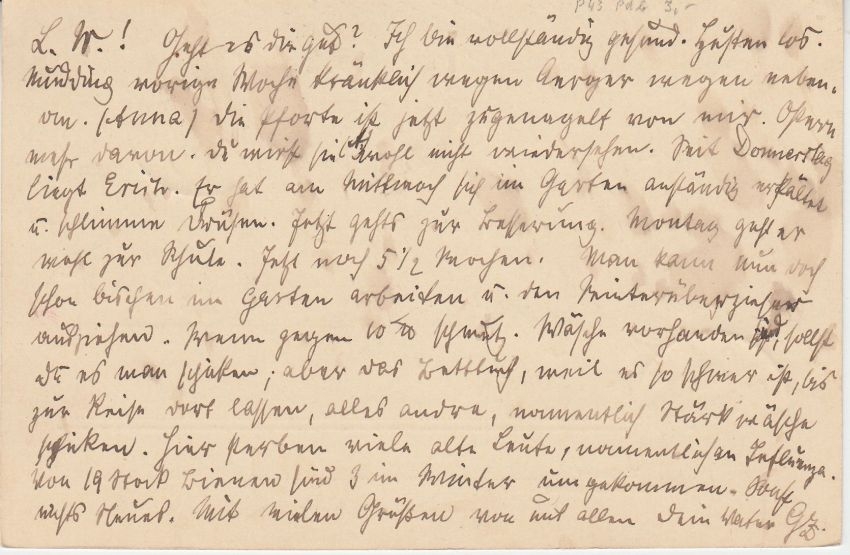 P 43 3,-
L. W.! Geht es dir gut? Ich bin vollständig gesund. Husten los.
vorige Woche kränklich wegen Aerger wegen neben-
an. (Anna) Die Pforte ist jetzt zugenagelt von mir. Ostern
mehr davon. Du wirst sie wohl nicht wiedersehen. Seit Donnerstag
liegt Erich. Er hat am Mittwoch sich im Garten anständig erkältet
u. schlimme Drüsen. Jetzt gehts zur Besserung. Montag geht er
wohl zur Schule. Jetzt noch 5 1/2 Wochen. Man kann nun doch
schon bischen im Garten arbeiten u. den Winterüberzieher
ausziehen. Wenn gegen 10 schmutz. Wäsche vorhanden ist, sollst
du es man schicken; aber das Betttuch, weil es so schwer ist, bis
zur Reise dort lassen, alles andre, namentlich Stärkwäsche
schicken. Hier sterben viele alte Leute, namentlich an Influenza.
Von 19 Stock Bienen sind 3 im Winter umgekommen. Sonst
nichts Neues. Mit vielen Grüßen von uns allen dein Vater